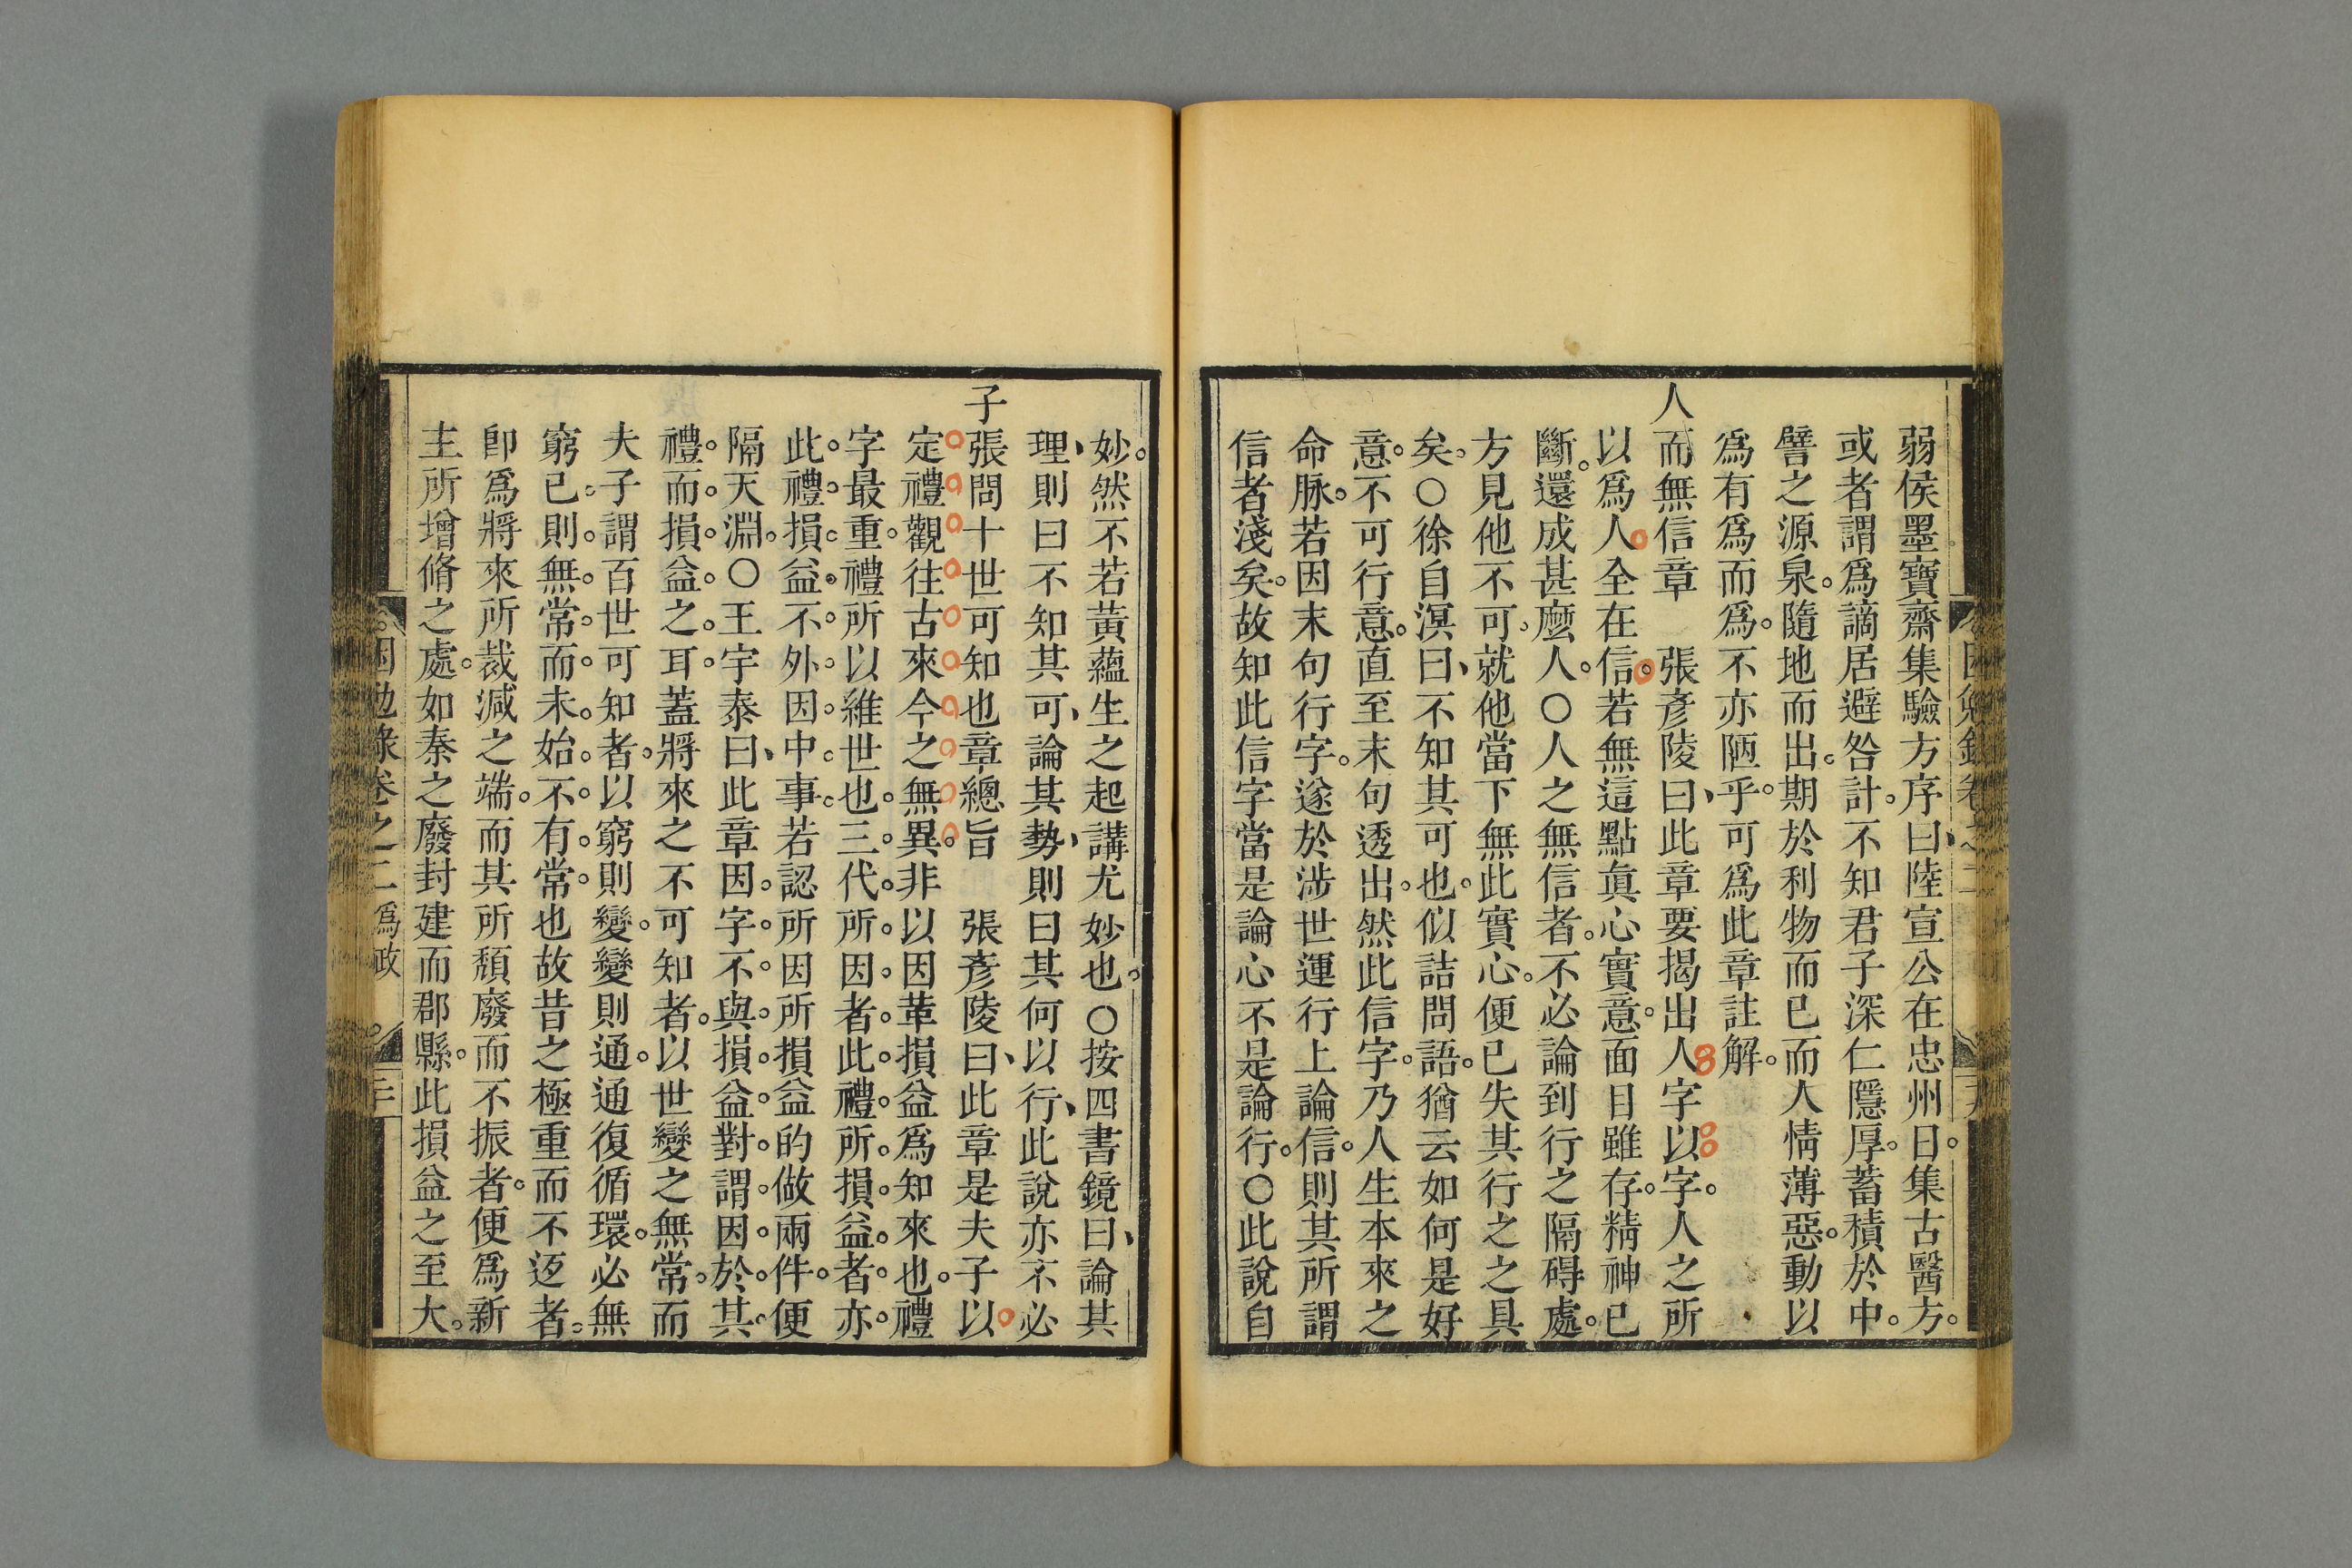 弱侯墨寶齋集驗方序曰陸宣公在忠州日。集古醫方。
或者謂爲謫居避咎計。不知君子深仁隱厚。蓄積於中。
譬之源泉。隨地而出。期於利物而已而人情薄惡。動以
爲有爲而爲。不亦陋乎。可爲此章註解。
人而無信章　張彥陵曰、此章要揭出人字以字。人之所
以爲人全在信。若無這點眞心實意。面目雖存。精神已
斷。還成甚麼人。○人之無信者。不必論到行之隔碍處。
方見他不可。就他當下無此實心。便已失其行之之具
矣。○徐自溟曰、不知其可也。似詰問語。猶云如何是好
意。不可行意。直至末句透出。然此信字。乃人生本來之
命脉。若因末句行字。遂於涉世運行上論信。則其所謂
信者淺矣。故知此信字當是論心不是論行。○此說自
妙。然不若黃蘊生之起講尤妙也。○按四書鏡曰、論其
理、則曰不知其可、論其勢、則曰其何以行、此說亦不必
子張問十世可知也章總旨　張彥陵曰、此章是夫子以
定禮觀往古來今之無異。非以因革損益爲知來也。禮
字最重。禮所以維世也。三代。所。因。者。此。禮。所。損。益。者。亦。
此。禮。損。益。不。外。因。中。事。若認所因所損益的做兩件。便
隔天淵。○王宇泰曰、此章因。字。不。與。損。益。對。謂。因。於。其。
禮。而。損。益。之。耳。蓋將來之不可知者。以世變之無常。而
夫子謂百世可知者。以窮則變。變則通。通復循環。必無
窮已。則。無。常。而。未。始。不。有。常。也故昔之極重而不返者。
卽爲將來所裁減之端。而其所頹廢而不振者。便爲新
主所增脩之處。如秦之廢封建而郡縣。此損益之至大。
困勉錄卷之二爲政